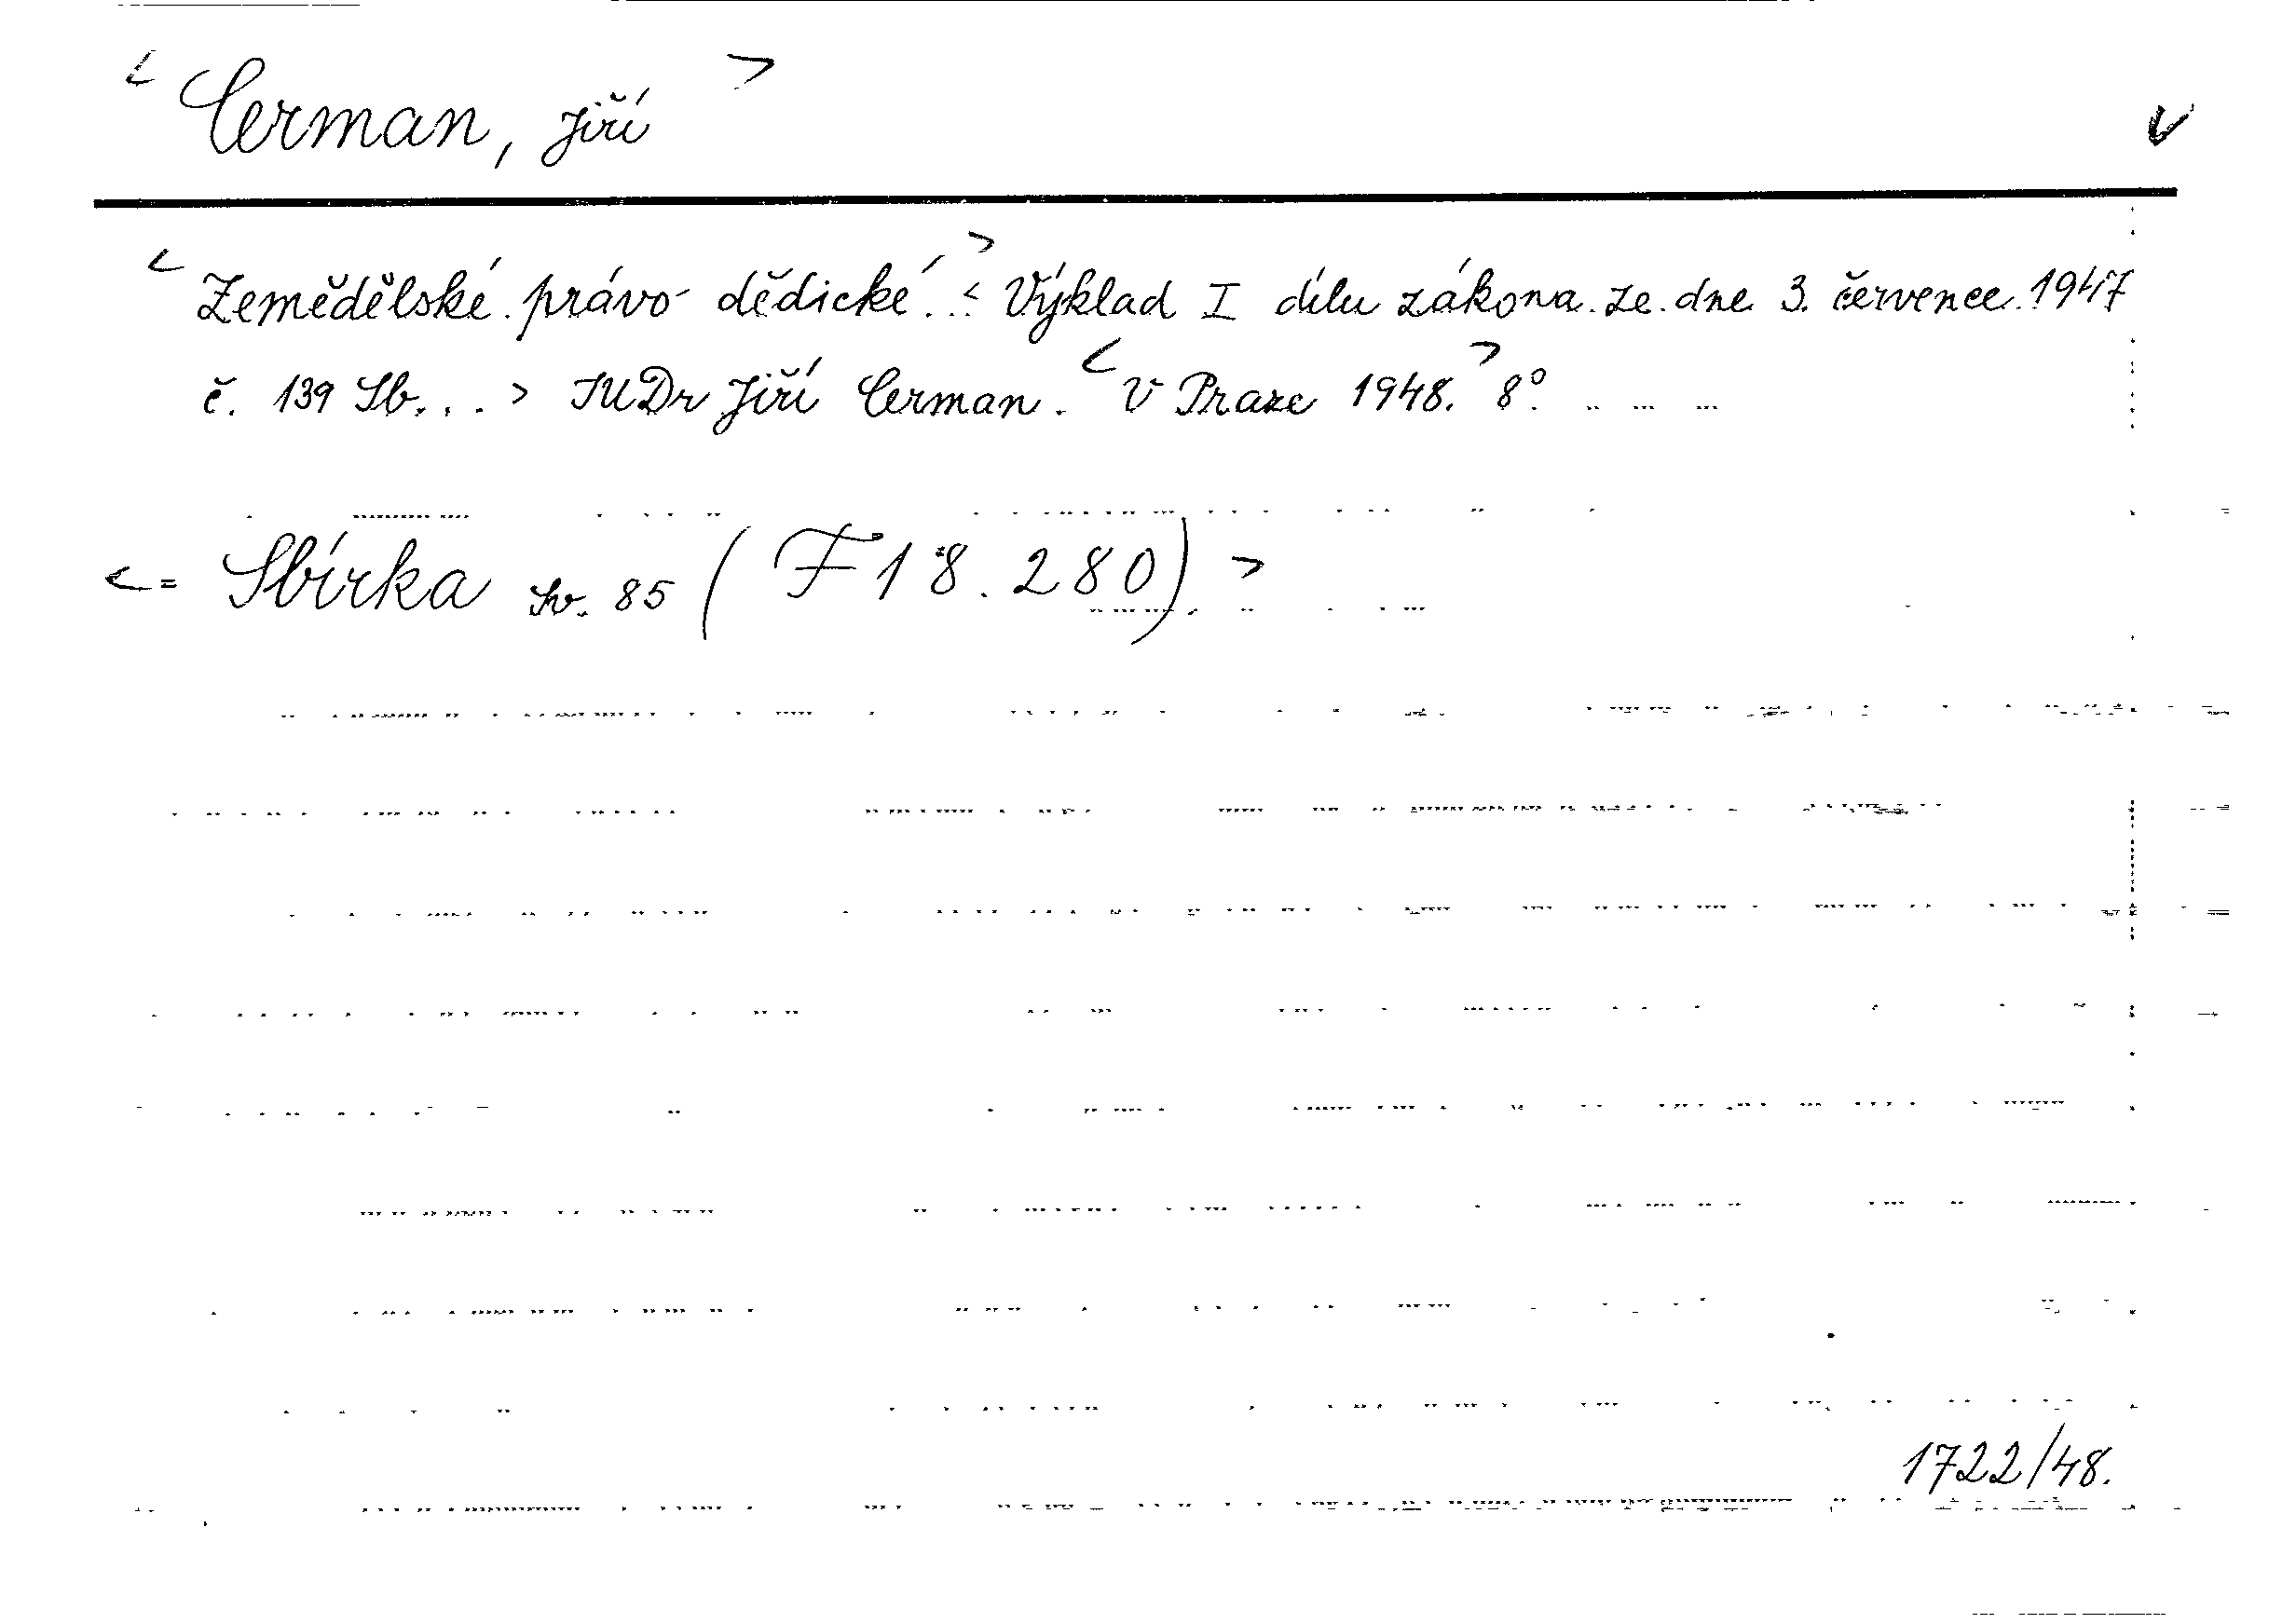 < Cerman, Jiří > v
< Zemědělské právo dědické. > < Výklad I dílu zákona ze dne 3. července 1947
č. 139 Sb... > JUDr Jiří Cerman. < V Praze 1948. > 8°.
< = Sbírka sv. 85 (F 18.280) >
1722/48.